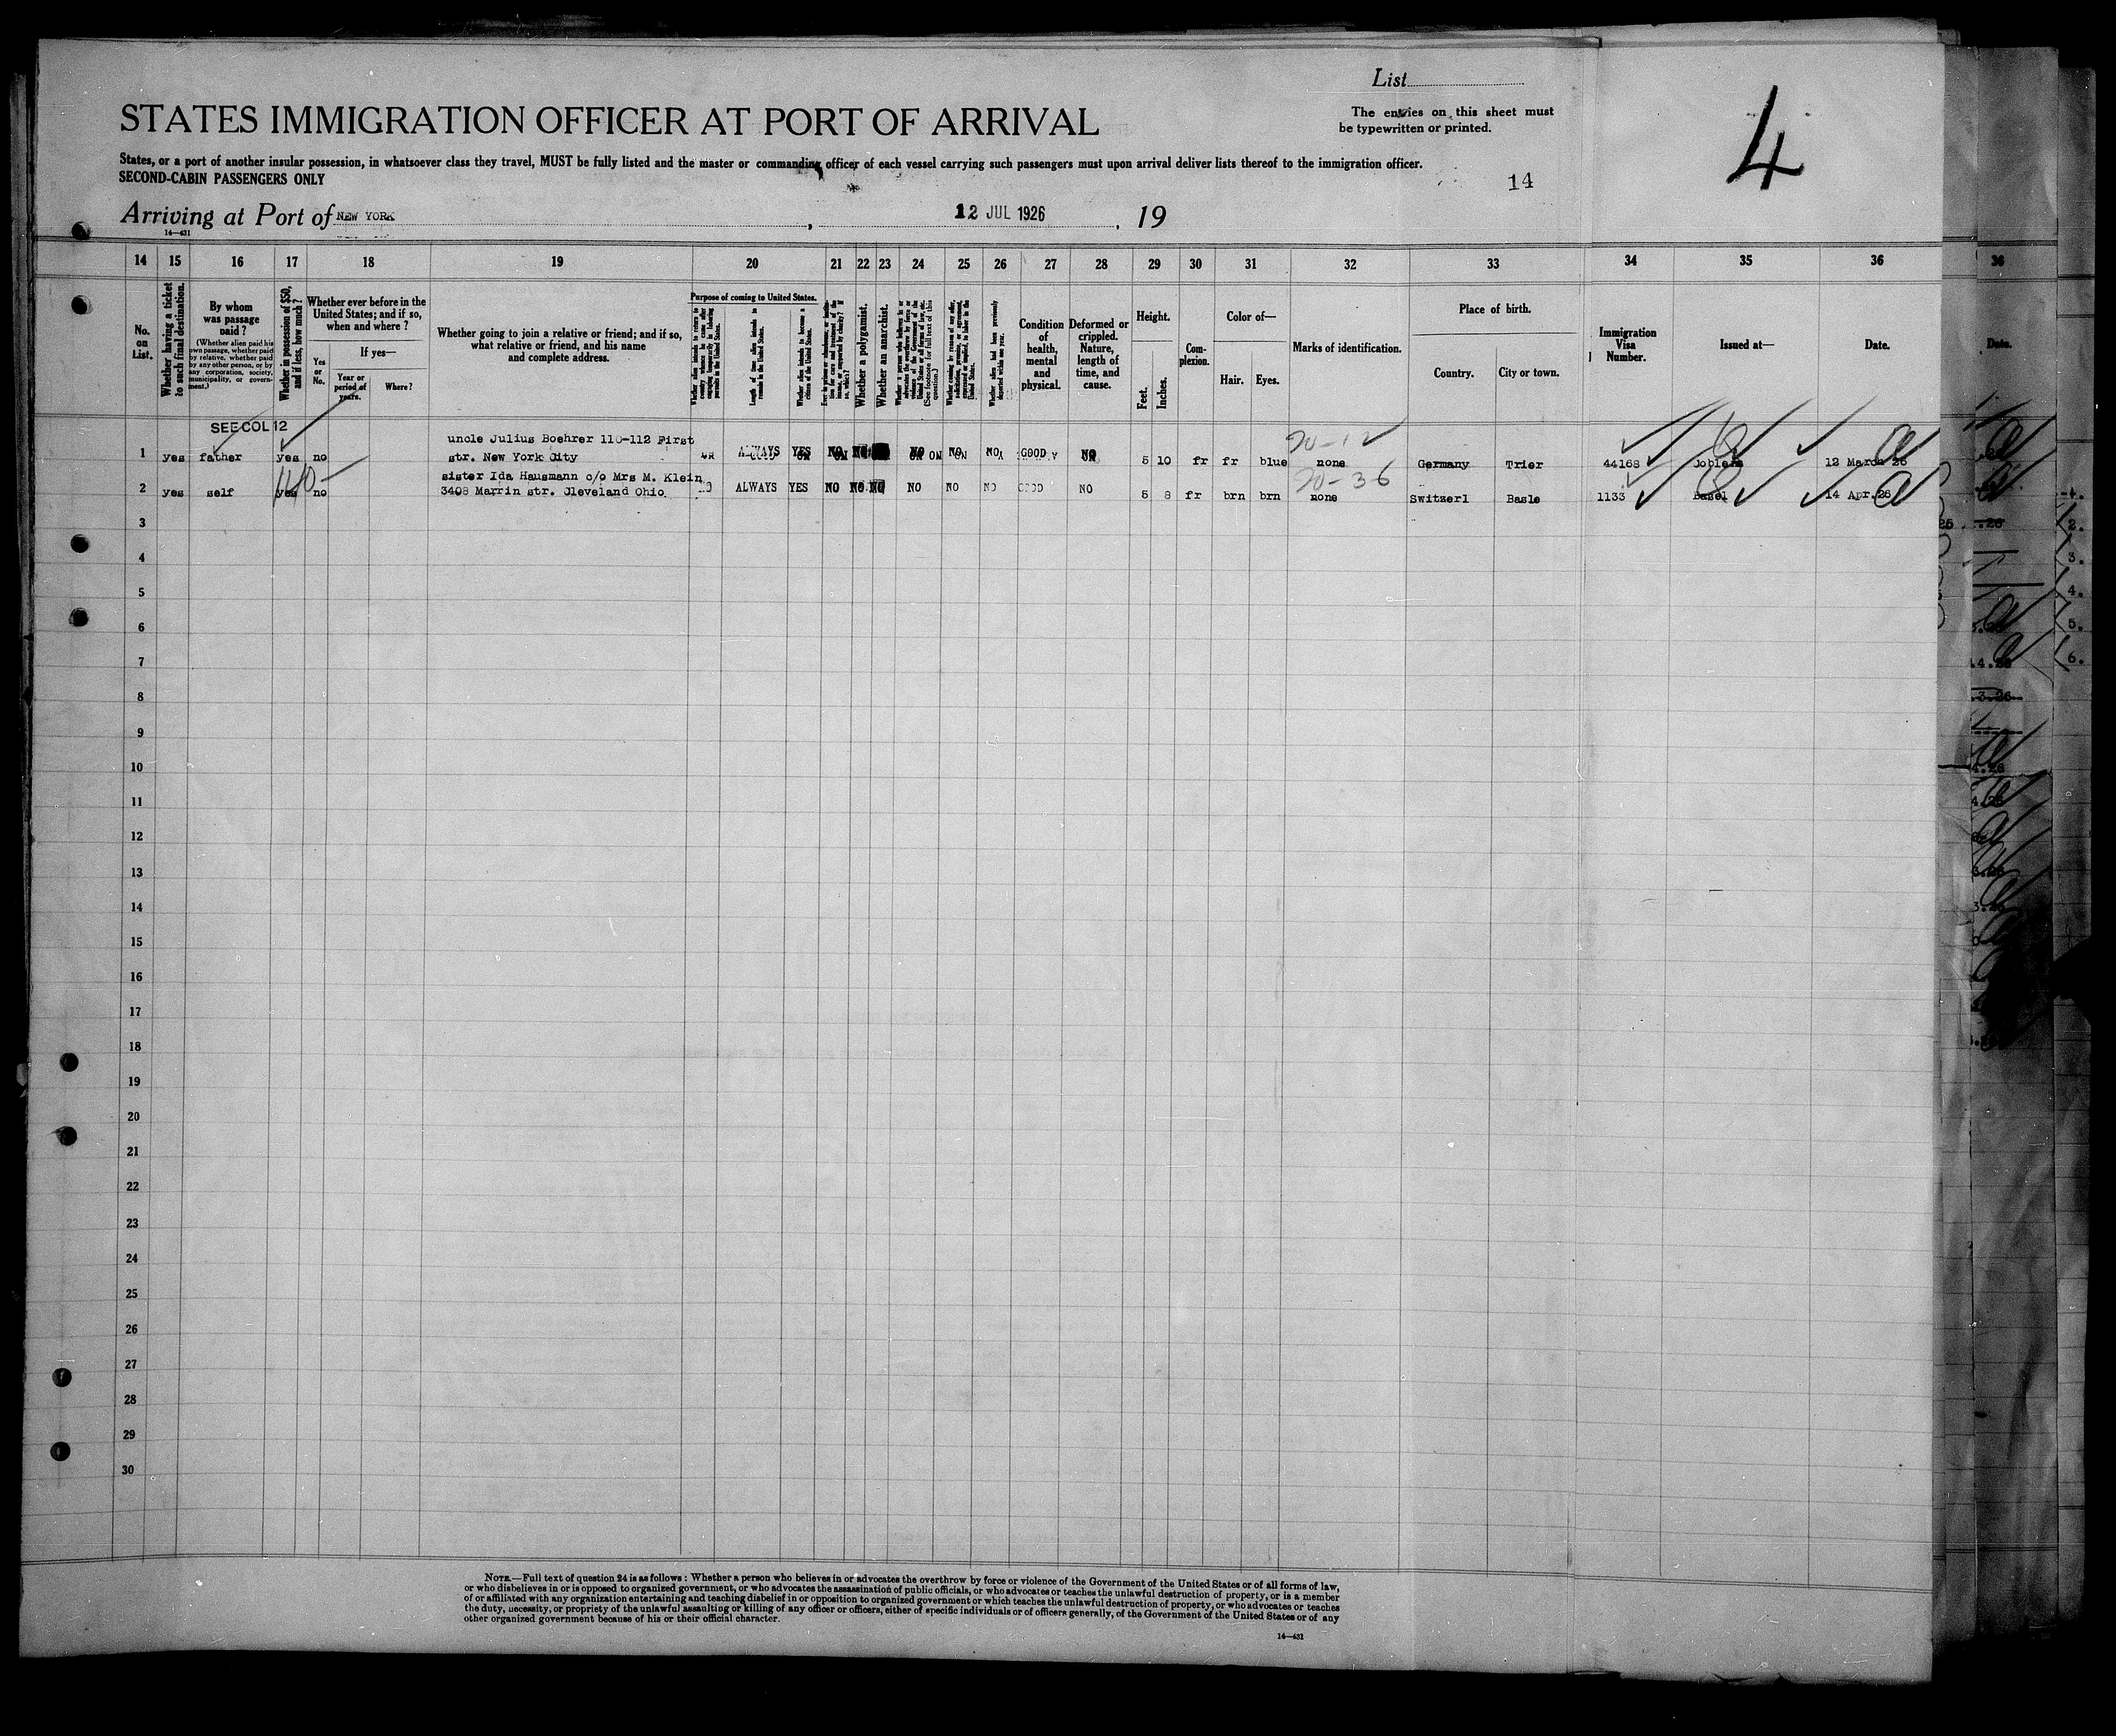 List
STATES IMMIGRATION OFFICER AT PORT OF ARRIVAL
The entries on this sheet must
be typewritten or printed.
4
States, or a port of another insular possession, in whatsoever class they travel, MUST be fully listed and the master or commanding officer of each vessel carrying such passengers must upon arrival deliver lists thereof to the immigration officer.
SECOND-CABIN PASSENGERS ONLY
14
Arriving at Port of NEW YORK , 12 JUL 1926 , 19
14—431
14 15 16 17 18 19 20 21 22 23 24 25 26 27 28 29 30 31 32 33 34 35 36
No. on List.
Whether having a ticket to such final destination.
By whom was passage paid?
(Whether alien paid his own passage, whether paid by relative, whether paid by any other person, or by any corporation, society, municipality, or government.)
Whether in possession of $50, and if less, how much?
Whether ever before in the United States; and if so, when and where?
Yes or No.
If yes—
Year or period of years.
Where?
Whether going to join a relative or friend; and if so, what relative or friend, and his name and complete address.
Purpose of coming to United States.
Whether alien intends to return to country whence he came after engaging temporarily in laboring pursuits in the United States.
Length of time alien intends to remain in the United States.
Whether alien intends to become a citizen of the United States.
Whether a polygamist.
Whether an anarchist.
(See footnote for full text of this question.)
Whether alien had been previously deported within one year.
Condition of health, mental and physical.
Deformed or crippled. Nature, length of time, and cause.
Height.
Feet.
Inches.
Complexion.
Color of—
Hair.
Eyes.
Marks of identification.
Place of birth.
Country.
City or town.
Immigration Visa Number.
Issued at—
Date.
SEE COL 12
1 yes father yes no uncle Julius Boehrer 110-112 First ALWAYS YES NO NO NO NO NO GOOD NO 5 10 fr fr blue none Germany Trier 44168 12 March 26
str. New York City
20-12
2 yes self yes no sister Ida Hausmann c/o Mrs M. Klein NO ALWAYS YES NO NO NO NO NO NO GOOD NO 5 8 fr brn brn none Switzerl Basle 1133 Basel 14 Apr.26
3408 Marrin str. Cleveland Ohio
140-
20-36
3
4
5
6
7
8
9
10
11
12
13
14
15
16
17
18
19
20
21
22
23
24
25
26
27
28
29
30
NOTE.—Full text of question 24 is as follows: Whether a person who believes in or advocates the overthrow by force or violence of the Government of the United States or of all forms of law,
or who disbelieves in or is opposed to organized government, or who advocates the assassination of public officials, or who advocates or teaches the unlawful destruction of property, or is a member
of or affiliated with any organization entertaining and teaching disbelief in or opposition to organized government or which teaches the unlawful destruction of property, or who advocates or teaches
the duty, necessity, or propriety of the unlawful assaulting or killing of any officer or officers, either of specific individuals or of officers generally, of the Government of the United States or of any
other organized government because of his or their official character.
14—431
36
Date.
2.
3.
4.
5.
6.